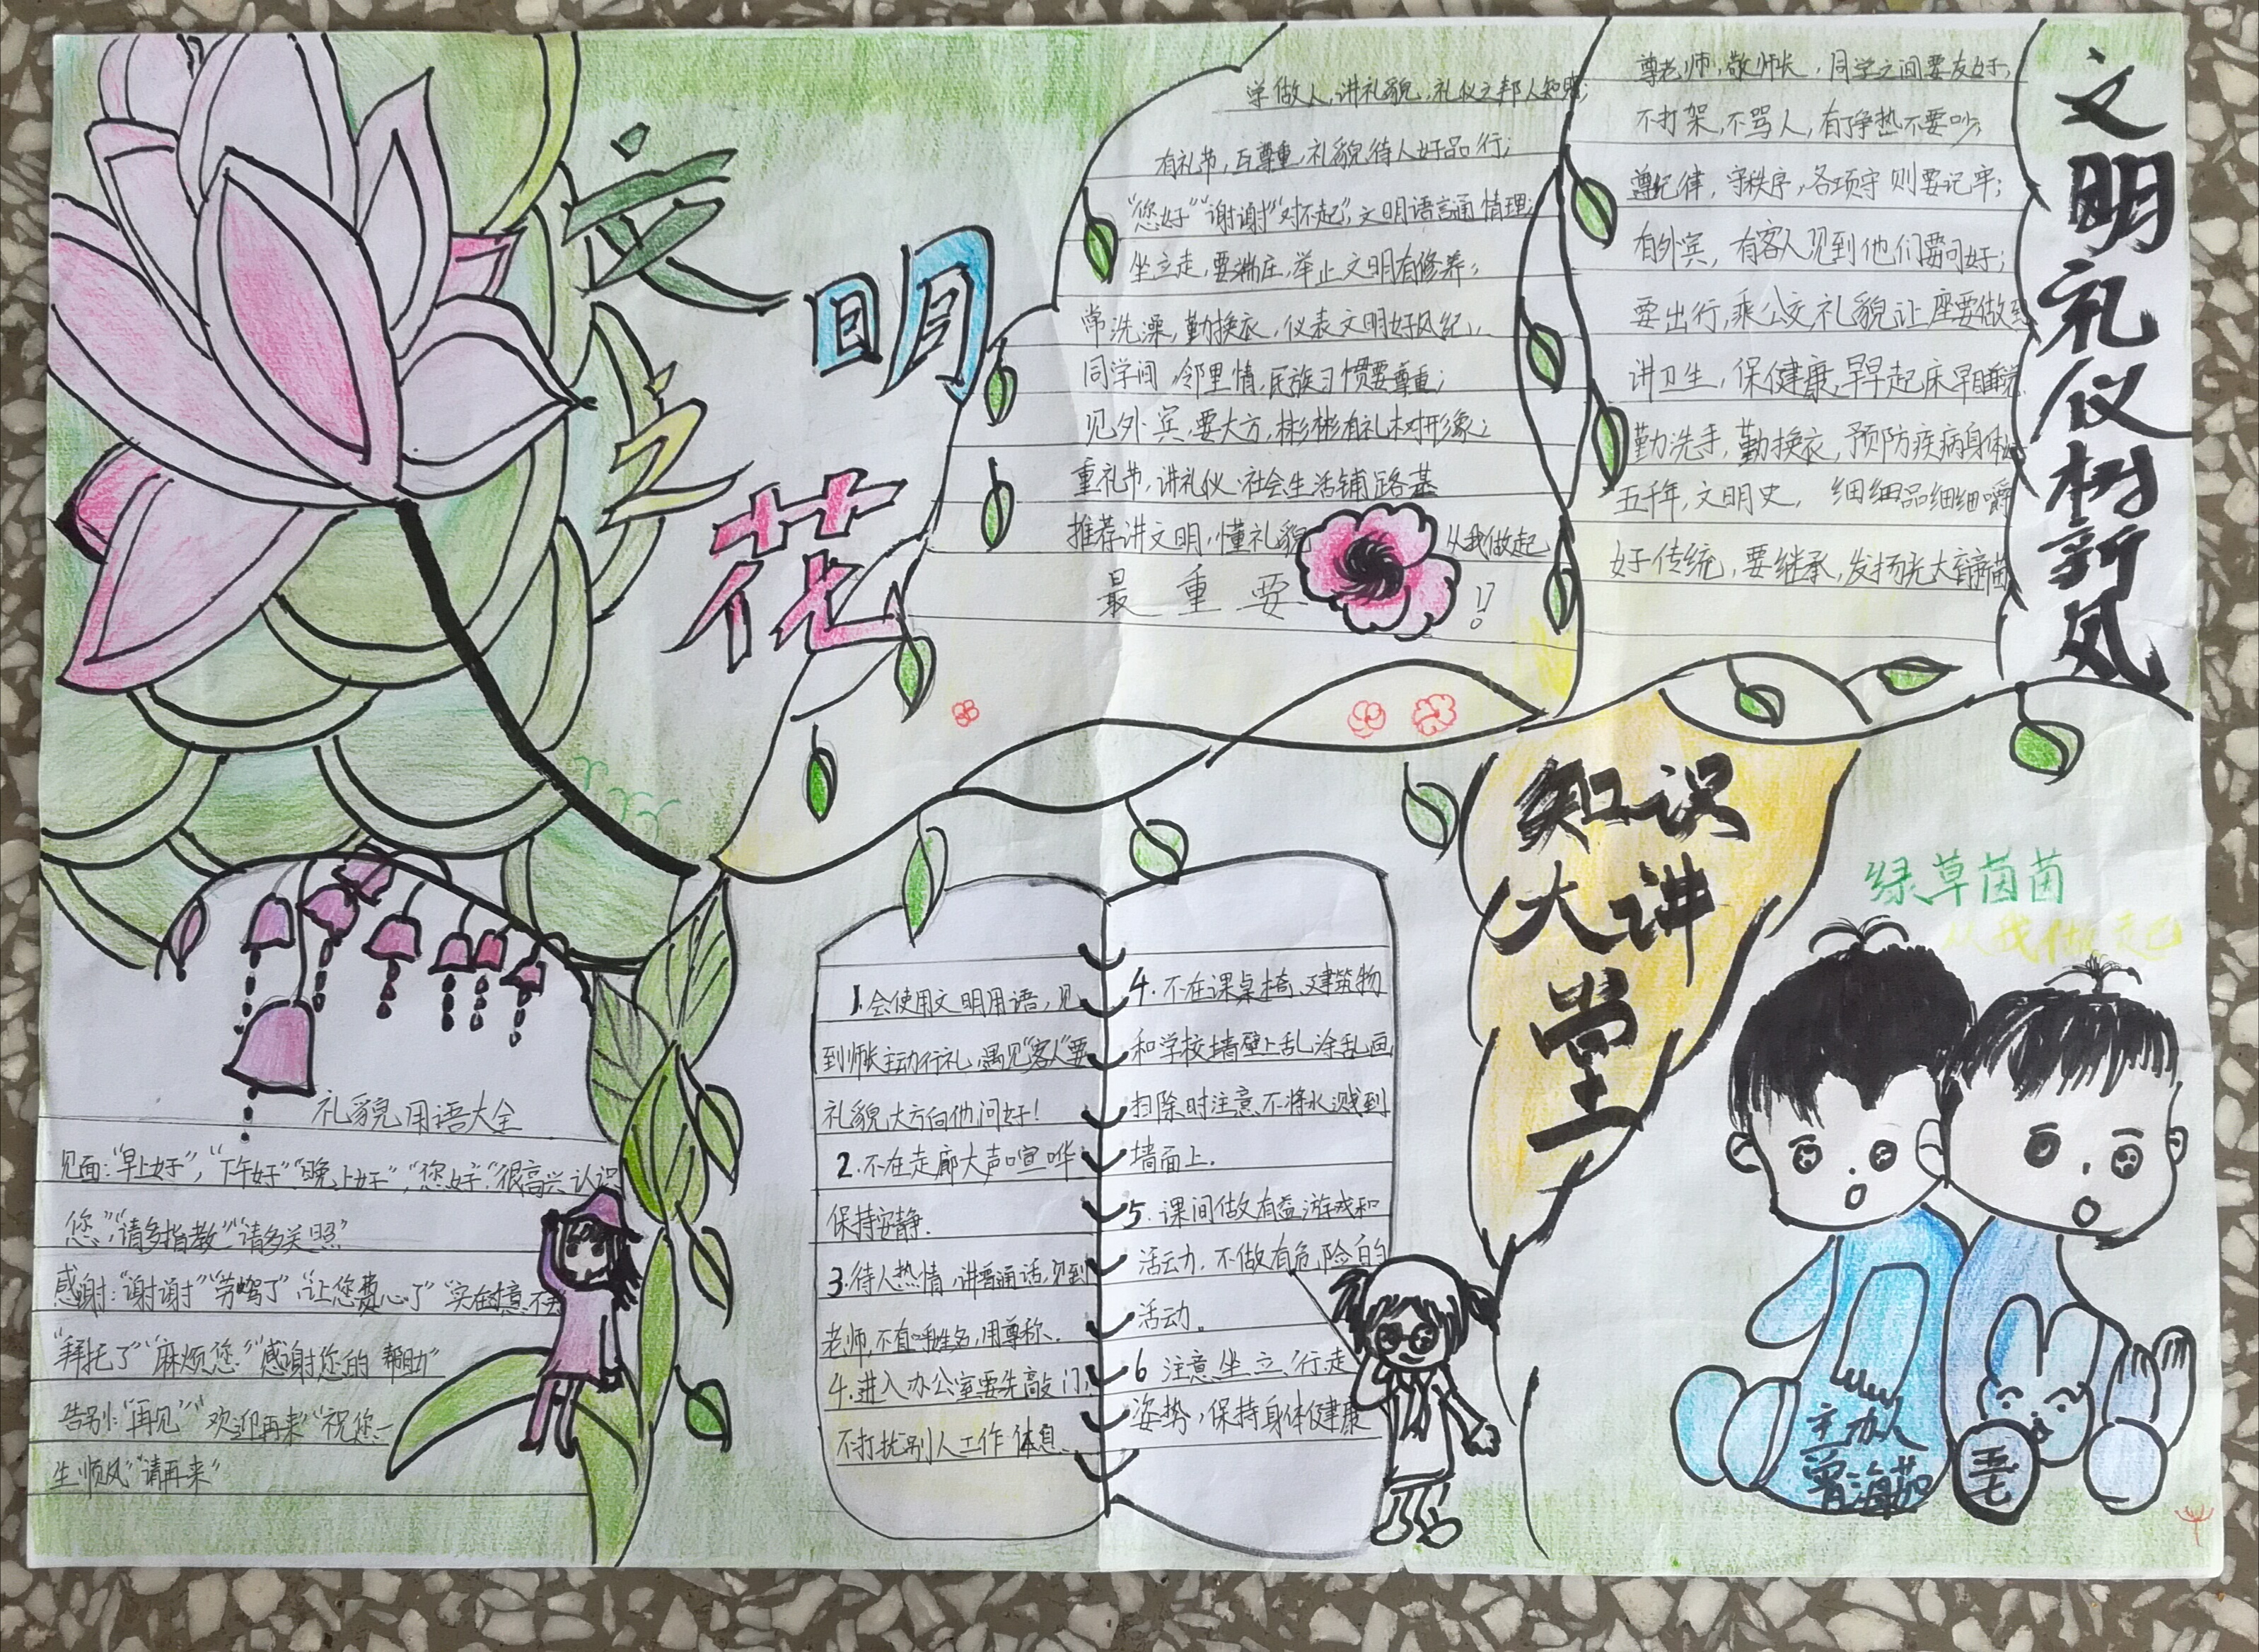 文明之花
学做人,讲礼貌,礼仪之邦人知晓;
有礼节,互尊重,礼貌待人好品行;
“您好”“谢谢”“对不起”,文明语言通情理;
坐立走,要端庄,举止文明有修养;
常洗澡,勤换衣,仪表文明好风纪;
同学间,邻里情,民族习惯要尊重;
见外宾,要大方,彬彬有礼树形象;
重礼节,讲礼仪,社会生活铺路基
推荐讲文明,懂礼貌 从我做起
最重要!!
尊老师,敬师长,同学之间要友好;
不打架,不骂人,有争执不要吵;
遵纪律,守秩序,各项守则要记牢;
有外宾,有客人见到他们要问好;
要出行,乘公交,礼貌让座要做到
讲卫生,保健康,早早起床早睡觉
勤洗手,勤换衣,预防疾病身体
五千年,文明史,细细品细细嚼
好传统,要继承,发扬光大
文明礼仪树新风
礼貌用语大全
见面:“早上好”,“下午好”“晚上好”,“您好”“很高兴认识
您”“请多指教”“请多关照”
感谢:“谢谢”“劳驾了”“让您费心了”“实在过意不去
“拜托了”“麻烦您”“感谢您的帮助”
告别:“再见”“欢迎再来”“祝您一
生顺风”“请再来”
1.会使用文明用语,见
到师长主动行礼,遇见“客人”要
礼貌大方向他问好!
2.不在走廊大声喧哗
保持安静.
3.待人热情,讲普通话,见到
老师,不直呼姓名,用尊称.
4.进入办公室要先敲门,
不打扰别人工作休息.
4.不在课桌椅、建筑物
和学校墙壁上乱涂乱画
扫除时注意不将水溅到
墙面上.
5.课间做有益游戏和
活动,不做有危险的
活动。
6 注意坐、立、行走
姿势,保持身体健康
知识
大讲
堂
绿草茵茵
从我做起
主办人
曾海茹